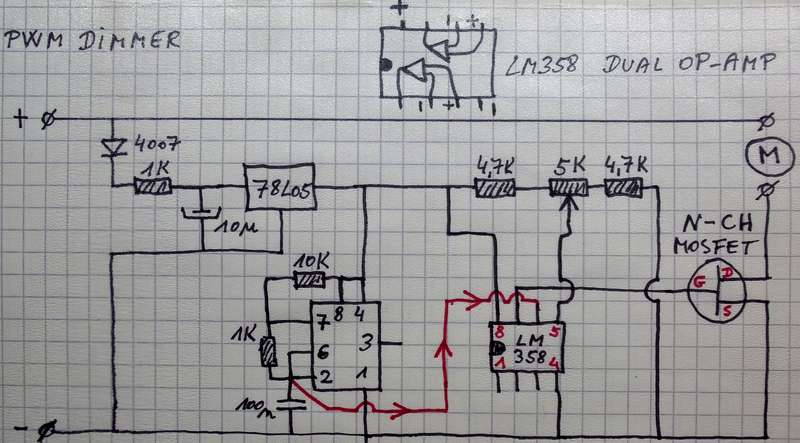 PWM DIMMER
+ - +
LM358 DUAL OP-AMP
+
+
4007
1K
78L05
4,7K 5K 4,7K
M
10µ
N-CH
MOSFET
10K
8 4
D
G
S
7
1K
6 3
2 1
8 5
LM
358
1 4
100n
-